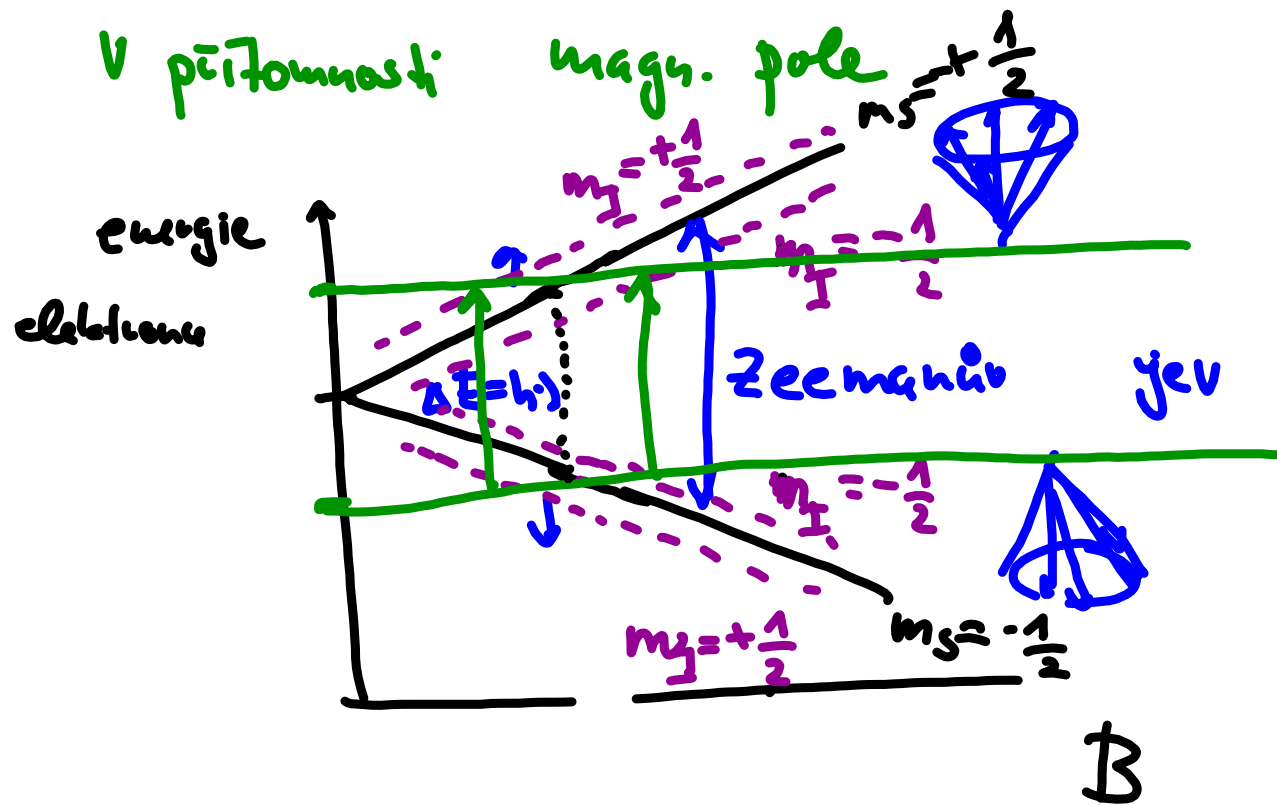 V přítomnosti magn. pole
mₛ = + 1/2
m_I = + 1/2
energie
elektronu
m_I = - 1/2
ΔE = hν
Zeemanův jev
m_I = - 1/2
m_I = + 1/2
mₛ = - 1/2
B